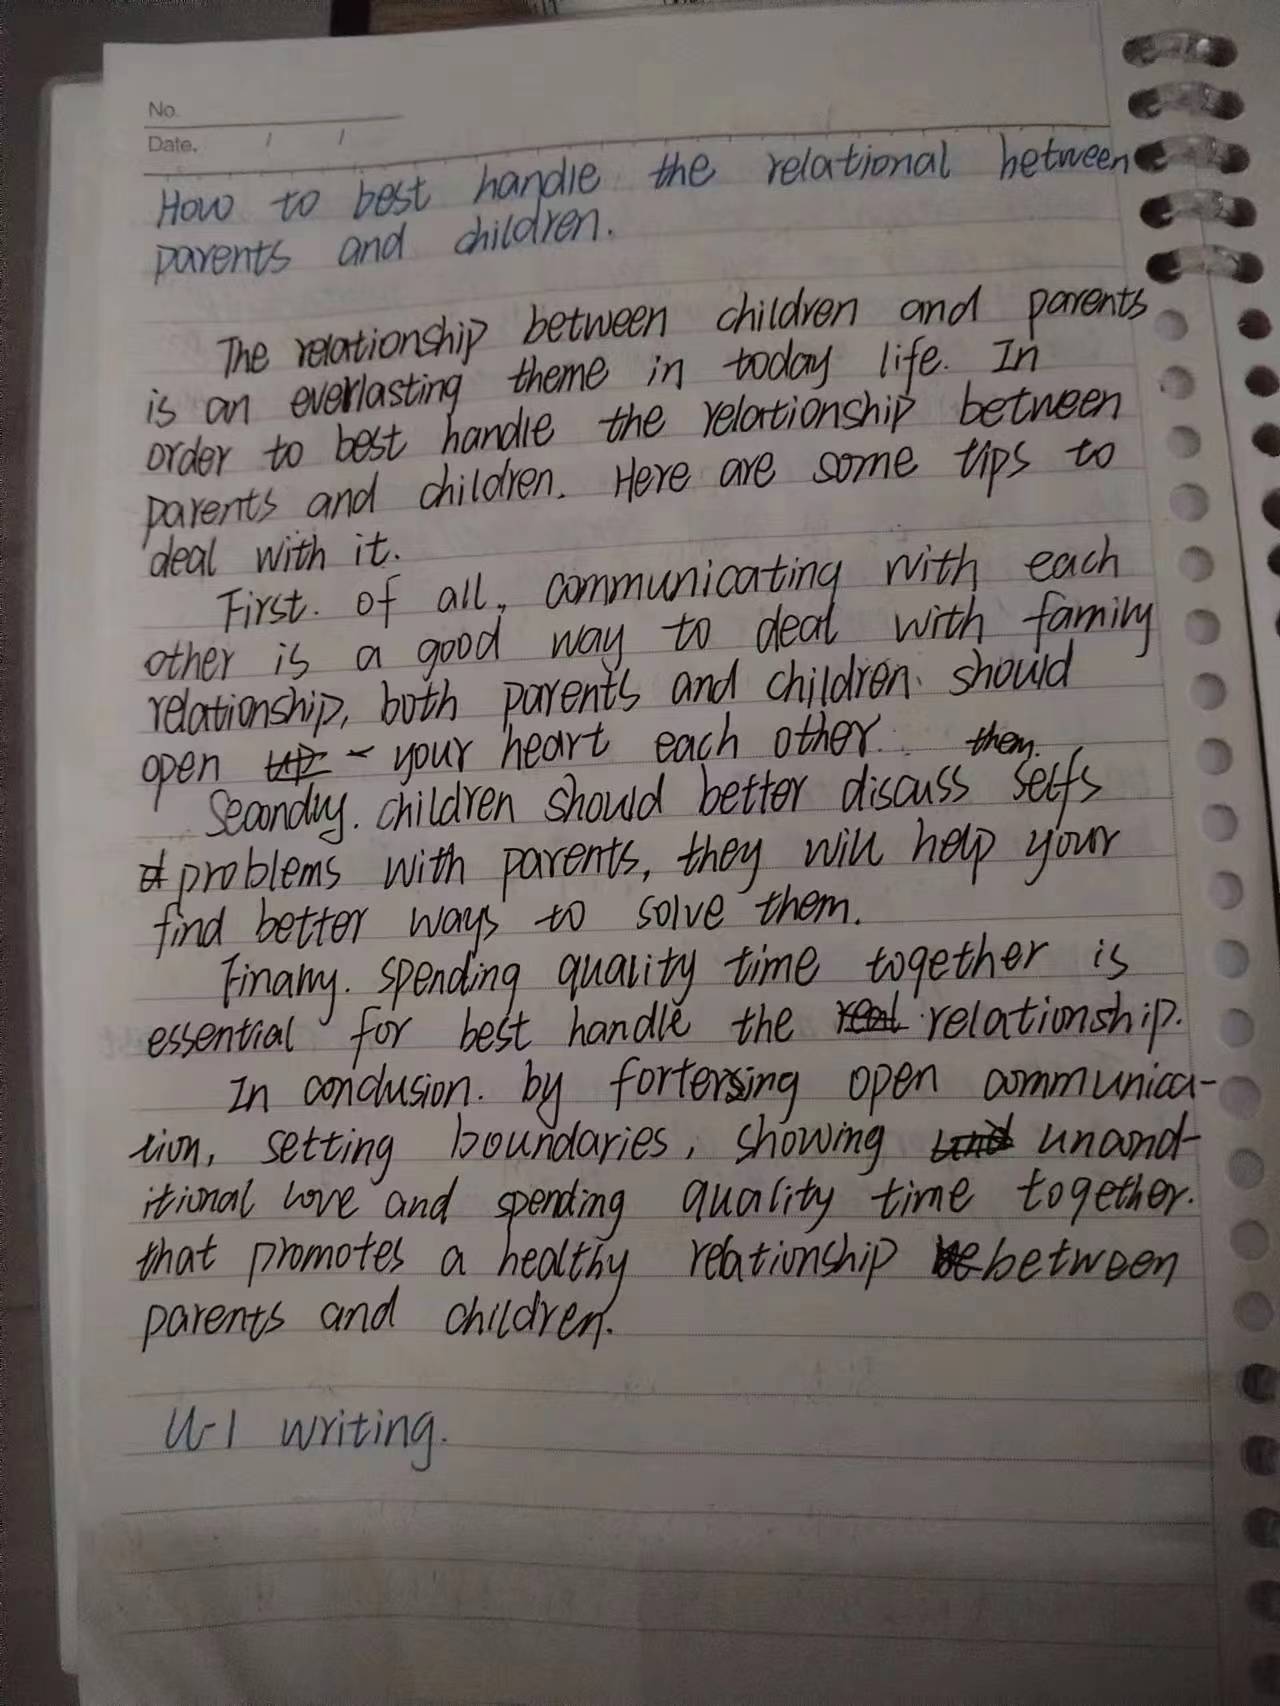 No.
Date. / /
How to best handle the relational between
parents and children.
The relationship between children and parents
is an everlasting theme in today life. In
order to best handle the relationship between
parents and children. Here are some tips to
deal with it.
First. of all, communicating with each
other is a good way to deal with family
relationship, both parents and children. should
open up your heart each other.
them.
Secondly. children should better discuss selfs
problems with parents, they will help your
find better ways to solve them.
Finally. spending quality time together is
essential for best handle the real relationship.
In conclusion. by fortersing open communica-
tion, setting boundaries, showing uncond-
itional love and spending quality time together.
that promotes a healthy relationship be between
parents and children.
U-1 writing.